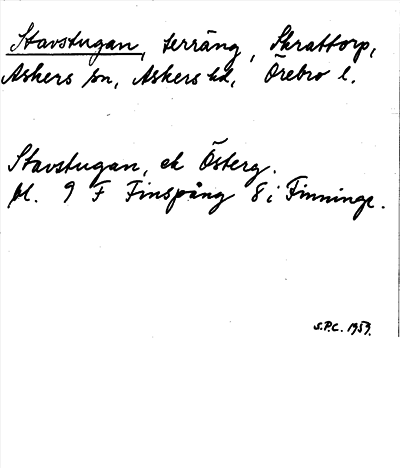 Stavstugan, terräng, Skrattorp,
Askers sn, Askers hd, Örebro l.
Stavstugan, ek Österg.
bl. 9 F Finspång 8 i Finninge.
S.P.C. 1959.